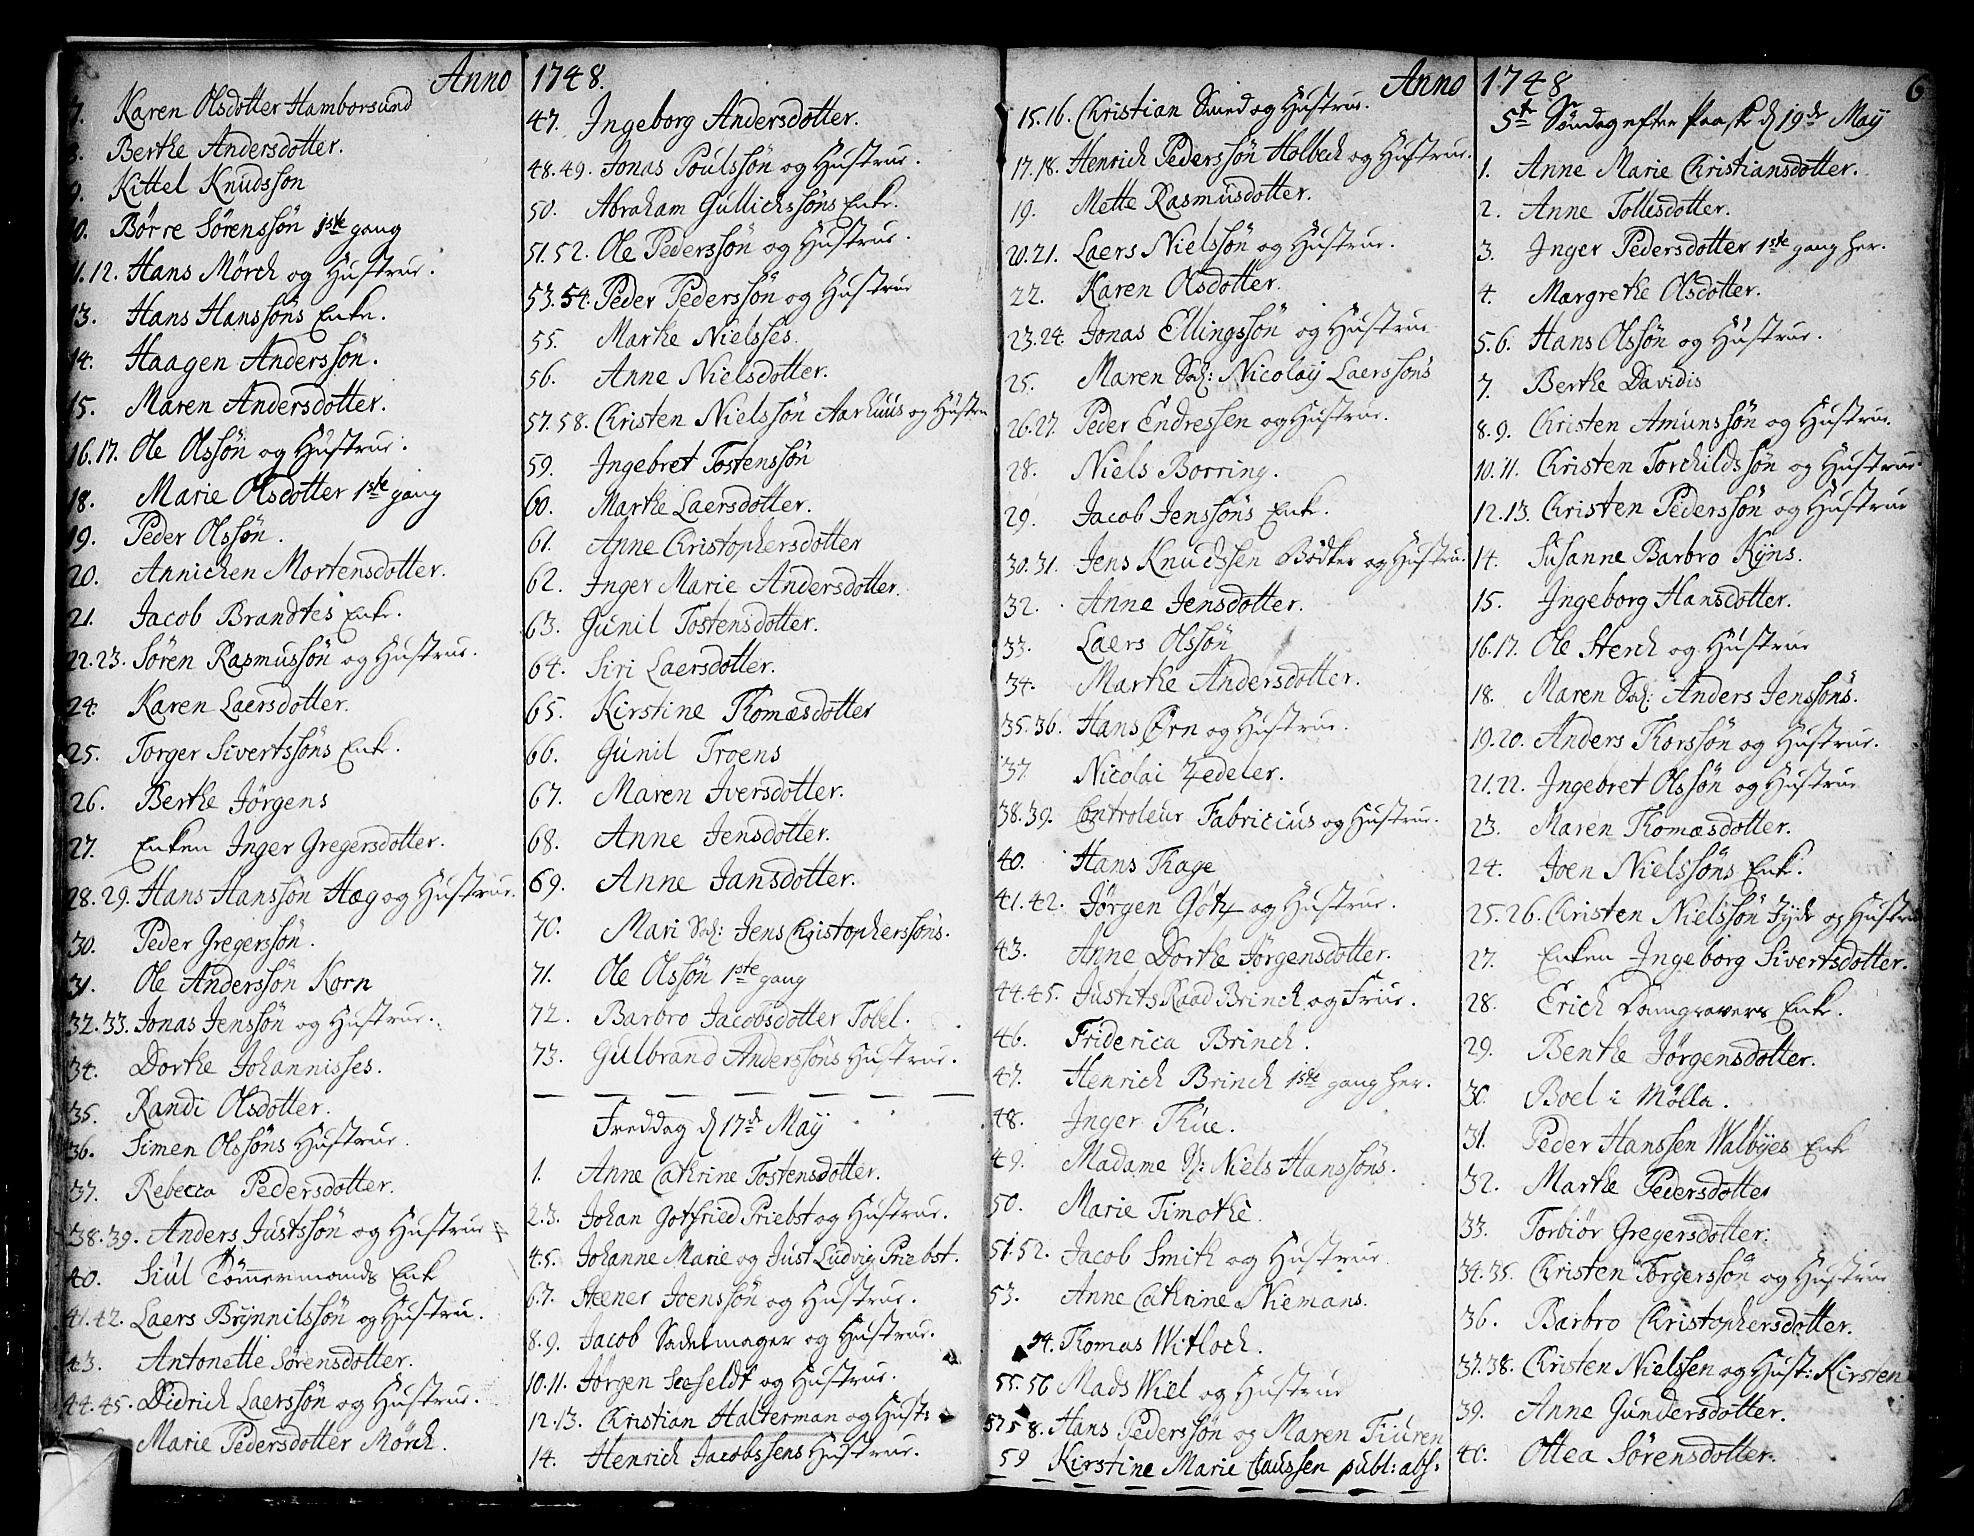 Anno
7. Karen Olsdotter Hamborsund
8. Berthe Andersdotter.
9. Kittel Knudsson
10. Børre Sørenssøn 1ste gang
11.12. Hans Mörch og Hustrue.
13. Hans Hanssøns Enke.
14. Haagen Anderssøn.
15. Maren Andersdotter.
16.17. Ole Olssøn og Hustrue.
18. Marie Olsdotter 1ste gang
19. Peder Olssøn.
20. Annichen Mortensdotter.
21. Jacob Brandtes Enke.
22.23. Søren Rasmussøn og Hustrue.
24. Karen Laersdotter.
25. Torger Sivertssøns Enke.
26. Berthe Jørgens
27. Enken Inger Gregersdotter.
28.29. Hans Hanssøn Hæg og Hustrue.
30. Peder Gregerssøn.
31. Ole Anderssøn Korn
32.33. Jonas Jenssøn og Hustrue.
34. Dorthe Johannisses.
35. Randi Olsdotter.
36. Simen Olssøns Hustrue.
37. Rebecca Pedersdotter.
38.39. Anders Justssøn og Hustrue
40. Siul Tömmermands Enke
41.42. Laers Brynnilssøn og Hustru.
43. Antonette Sørensdotter.
44.45. Didrich Laerssøn og Hustrue.
Marie Pedersdotter Mörch.
1748.
47. Ingeborg Andersdotter.
48.49. Jonas Poulssøn og Hustrue.
50. Abraham Gullichssøns Enke.
51.52. Ole Pederssøn og Hustrue.
53.54. Peder Pederssøn og Hustrue
55. Marthe Nielsses.
56. Anne Nielsdotter.
57.58. Christen Nielssøn Aarhuus og Hustru
59. Ingebret Tostenssøn
60. Marthe Laersdotter.
61. Anne Christophersdotter
62. Inger Marie Andersdotter.
63. Gunil Tostensdotter.
64. Siri Laersdotter.
65. Kirstine Thomæsdotter
66. Gunil Troens
67. Maren Iversdotter.
68. Anne Jensdotter.
69. Anne Jansdotter.
70. Mari Sal: Jens Christopherssøns.
71. Ole Olssøn 1ste gang
72. Barbro Jacobsdotter Tobel.
73. Gulbrand Anderssøns Hustrue.
Freddag d 17de May
1. Anne Cathrine Tostensdotter.
2.3. Johan Gotfried Priebst og Hustrue.
4.5. Johanne Marie og Just Ludvig Priebst.
6.7. Steener Joenssøn og Hustrue.
8.9. Jacob Sadelmager og Hustrue.
10.11. Jörgen Seefeldt og Hustrue.
12.13. Christian Halterman og Hust:
14. Henrich Jacobssens Hustrue.
Anno
15.16. Christian Smed og Hustrue.
17.18. Henrich Pederssøn Holbech og Hustrue.
19. Mette Rasmusdotter.
20.21. Laers Nielssøn og Hustrue.
22. Karen Olsdotter.
23.24. Jonas Ellingssøn og Hustrue
25. Maren Sal: Nicolaÿ Laerssøns
26.27. Peder Endressen og Hustrue.
28. Niels Borring.
29. Jacob Jenssøns Enke.
30.31. Jens Knudssen Bødker og Hustru.
32. Anne Jensdotter.
33. Laers Olssøn
34. Marthe Andersdotter.
35.36. Hans Ørn og Hustrue.
37. Nicolai Zedeler.
38.39. Controleur Fabricius og Hustrue.
40. Hans Thage
41.42. Jørgen Götz og Hustrue.
43. Anne Dorthe Jørgensdotter.
44.45. Justits Raad Brinch og Frue.
46. Friderica Brinch.
47. Henrich Brinch 1ste gang her.
48. Inger Thue.
49. Madame Niels Hanssøns.
50. Marie Timothe.
51.52. Jacob Smith og Hustrue
53. Anne Cathrine Niemans.
54. Thomas Witloch.
55.56 Mads Wiel og Hustrue
57.58. Hans Pederssøn og Maren Fiuren
59 Kirstine Marie Claussen publ: abs:
1748 6
5te Søndag efter Paaske d 19de May
1. Anne Marie Christiansdotter.
2. Anne Tollesdotter.
3. Inger Pedersdotter 1ste gang her.
4. Margrethe Olsdotter.
5.6. Hans Olssøn og Hustrue.
7. Berthe Davidis
8.9. Christen Amunssøn og Hustrue.
10.11. Christen Torchildssøn og Hustrue.
12.13. Christen Pederssøn og Hustrue
14. Susanne Barbro Kÿns.
15. Ingeborg Hansdotter.
16.17. Ole Sterch og Hustrue
18. Maren Sal: Anders Jenssøns.
19.20. Anders Thorssøn og Hustrue.
21.22. Ingebret Olssøn og Hustrue
23. Maren Thomæsdotter.
24. Joen Nielssøns Enke.
25.26. Christen Nielssøn Jyde og Hustru
27. Enken Ingeborg Sivertsdotter.
28. Erich Damgravers Enke.
29. Benthe Jørgensdotter.
30. Boel i Mölla.
31. Peder Hanssen Walbÿes Enke
32. Marthe Pedersdotter
33. Torbiør Gregersdotter.
34.35. Christen Torgerssøn og Hustrue
36. Barbro Christophersdotter.
37.38. Christen Nielssen og Hust: Kirsten
39. Anne Gundersdotter.
40. Ottea Sørensdotter.